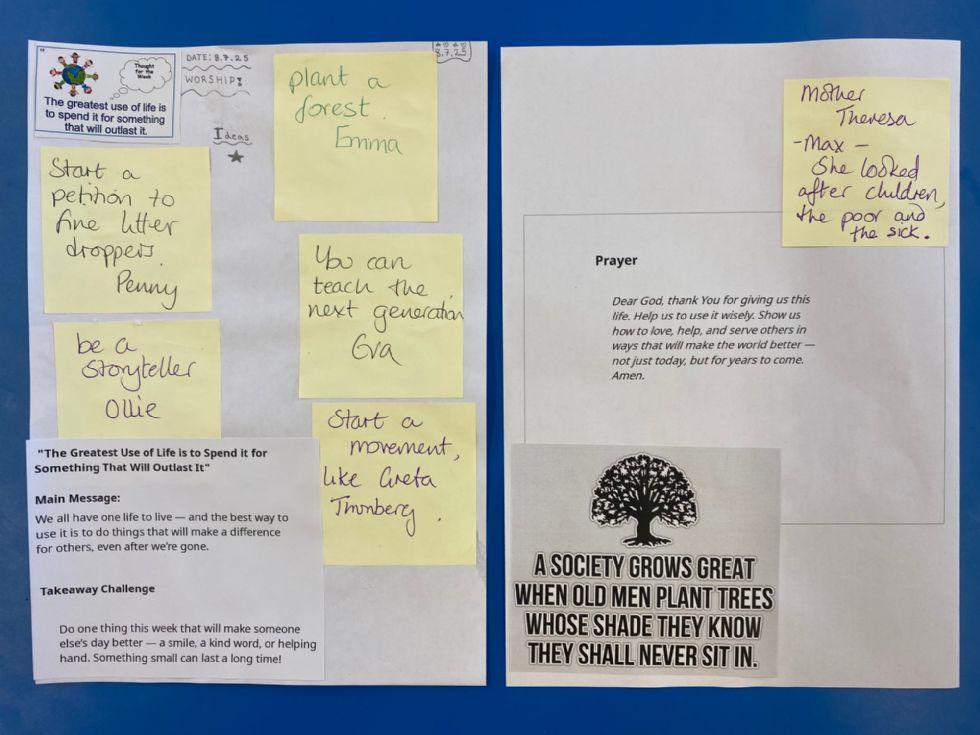 "
Thought
for the
Week
The greatest use of life is
to spend it for something
that will outlast it.
DATE: 8.7.25
WORSHIP:
Ideas
8.7.25
plant a
forest.
Emma
Start a
petition to
fine litter
droppers.
Penny
You can
teach the
next generation
Eva
be a
storyteller
Ollie
Start a
movement,
like Greta
Thunberg.
"The Greatest Use of Life is to Spend it for
Something That Will Outlast It"
Main Message:
We all have one life to live — and the best way to
use it is to do things that will make a difference
for others, even after we're gone.
Takeaway Challenge
Do one thing this week that will make someone
else's day better — a smile, a kind word, or helping
hand. Something small can last a long time!
Mother
Theresa
-Max-
She looked
after children,
the poor and
the sick.
Prayer
Dear God, thank You for giving us this
life. Help us to use it wisely. Show us
how to love, help, and serve others in
ways that will make the world better —
not just today, but for years to come.
Amen.
A SOCIETY GROWS GREAT
WHEN OLD MEN PLANT TREES
WHOSE SHADE THEY KNOW
THEY SHALL NEVER SIT IN.